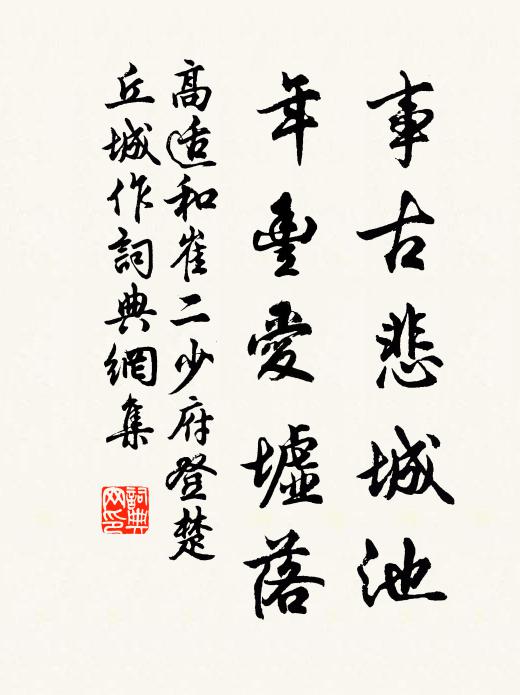 事古悲城池
年豐愛墟落
高适和崔二少府登楚
丘城作詞典網集
詞典
网印